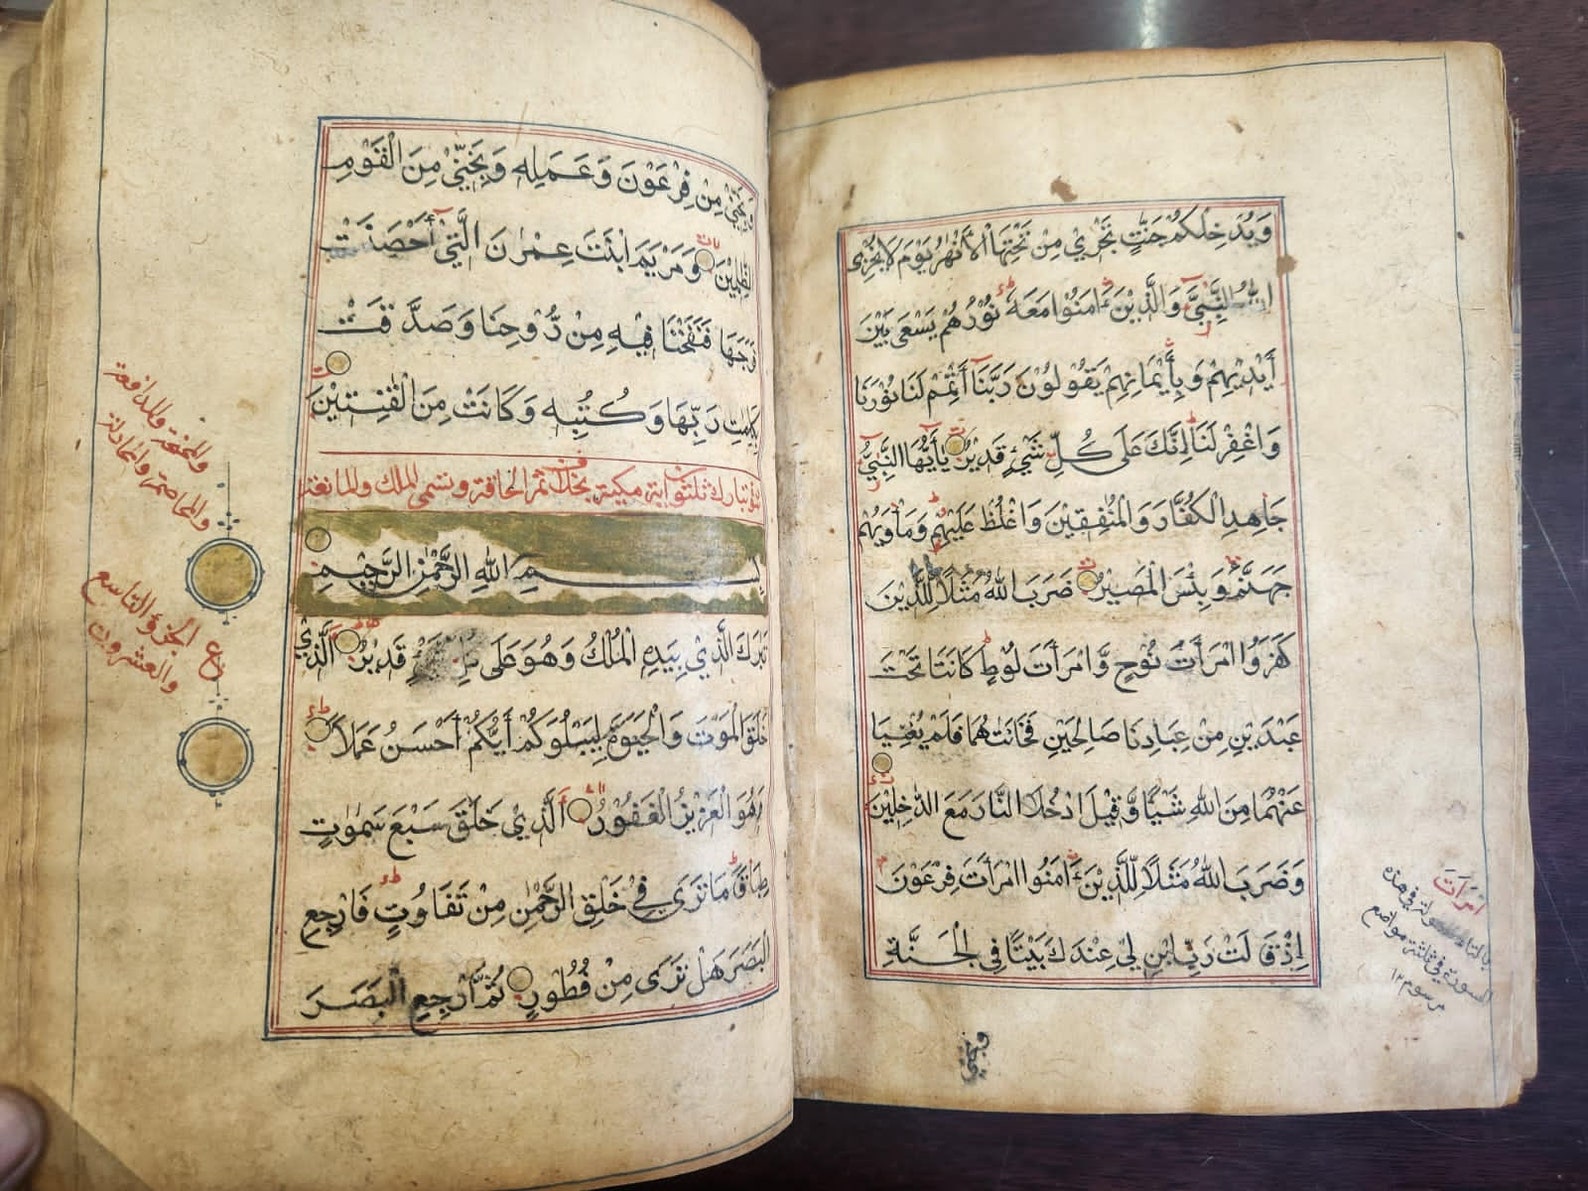 وَيُدْخِلَكُمْ جَنّٰتٍ تَجْرِيْ مِنْ تَحْتِهَا الْاَنْهٰرُ يَوْمَ لَا يُخْزِى
اللّٰهُ النَّبِيَّ وَالَّذِيْنَ ءَامَنُوْا مَعَهٗ نُوْرُهُمْ يَسْعٰى بَيْنَ
أَيْدِيْهِمْ وَبِأَيْمَانِهِمْ يَقُوْلُوْنَ رَبَّنَآ أَتْمِمْ لَنَا نُوْرَنَا
وَاغْفِرْ لَنَا اِنَّكَ عَلٰى كُلِّ شَيْءٍ قَدِيْرٌ يٰأَيُّهَا النَّبِيُّ
جَاهِدِ الْكُفَّارَ وَالْمُنٰفِقِيْنَ وَاغْلُظْ عَلَيْهِمْ وَمَأْوٰىهُمْ
جَهَنَّمُ وَبِئْسَ الْمَصِيْرُ ضَرَبَ اللّٰهُ مَثَلًا لِّلَّذِيْنَ
كَفَرُوا امْرَأَتَ نُوْحٍ وَّامْرَأَتَ لُوْطٍ كَانَتَا تَحْتَ
عَبْدَيْنِ مِنْ عِبَادِنَا صَالِحَيْنِ فَخَانَتٰهُمَا فَلَمْ يُغْنِيَا
عَنْهُمَا مِنَ اللّٰهِ شَيْـًٔا وَّقِيْلَ ادْخُلَا النَّارَ مَعَ الدّٰخِلِيْنَ
وَضَرَبَ اللّٰهُ مَثَلًا لِّلَّذِيْنَ ءَامَنُوا امْرَأَتَ فِرْعَوْنَ
اِذْ قَالَتْ رَبِّ ابْنِ لِيْ عِنْدَكَ بَيْتًا فِي الْجَنَّةِ
امْرَأَتَ
فِي هٰذِهِ
السورة في ثلثة مواضع
مرسوم ١٢
وَنَجِّنِي
وَنَجِّنِيْ مِنْ فِرْعَوْنَ وَعَمَلِهٖ وَنَجِّنِيْ مِنَ الْقَوْمِ
الظّٰلِمِيْنَ وَمَرْيَمَ ابْنَتَ عِمْرٰنَ الَّتِيْٓ أَحْصَنَتْ
فَرْجَهَا فَنَفَخْنَا فِيْهِ مِنْ رُّوْحِنَا وَصَدَّقَتْ
بِكَلِمٰتِ رَبِّهَا وَكُتُبِهٖ وَكَانَتْ مِنَ الْقٰنِتِيْنَ
تبارك ثلثون اية مكية ثم الحاقة وتسمى الملك والمانعة
والمنجية والدافعة
والمخاصمة والمجادلة
بِسْمِ اللّٰهِ الرَّحْمٰنِ الرَّحِيْمِ
ع الجزء التاسع
والعشرون
تَبٰرَكَ الَّذِيْ بِيَدِهِ الْمُلْكُ وَهُوَ عَلٰى كُلِّ شَيْءٍ قَدِيْرٌ الَّذِيْ
خَلَقَ الْمَوْتَ وَالْحَيٰوةَ لِيَبْلُوَكُمْ أَيُّكُمْ أَحْسَنُ عَمَلًا
وَهُوَ الْعَزِيْزُ الْغَفُوْرُ الَّذِيْ خَلَقَ سَبْعَ سَمٰوٰتٍ
طِبَاقًا مَا تَرٰى فِيْ خَلْقِ الرَّحْمٰنِ مِنْ تَفَاوُتٍ فَارْجِعِ
الْبَصَرَ هَلْ تَرٰى مِنْ فُطُوْرٍ ثُمَّ ارْجِعِ الْبَصَرَ